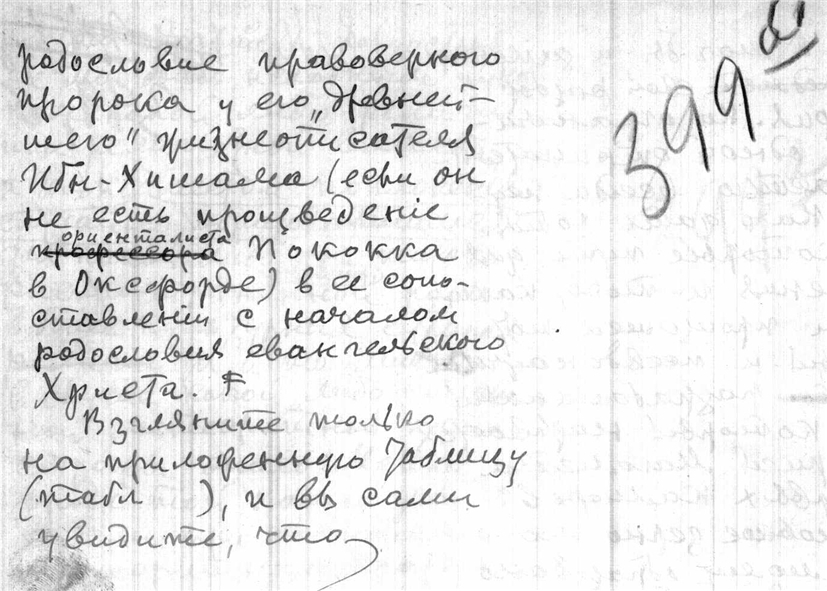 399
родословие правоверного
пророка у его „древней-
шего" жизнеописателя
Ибн-Хишама (если он
не есть произведеніе
ориенталиста
профессора Пококка
в Оксфорде) в ее сопо-
ставленіи с началом
родословия евангельского
Христа. F
Взгляните только
на приложенную таблицу
(табл ), и вы сами
увидите, что